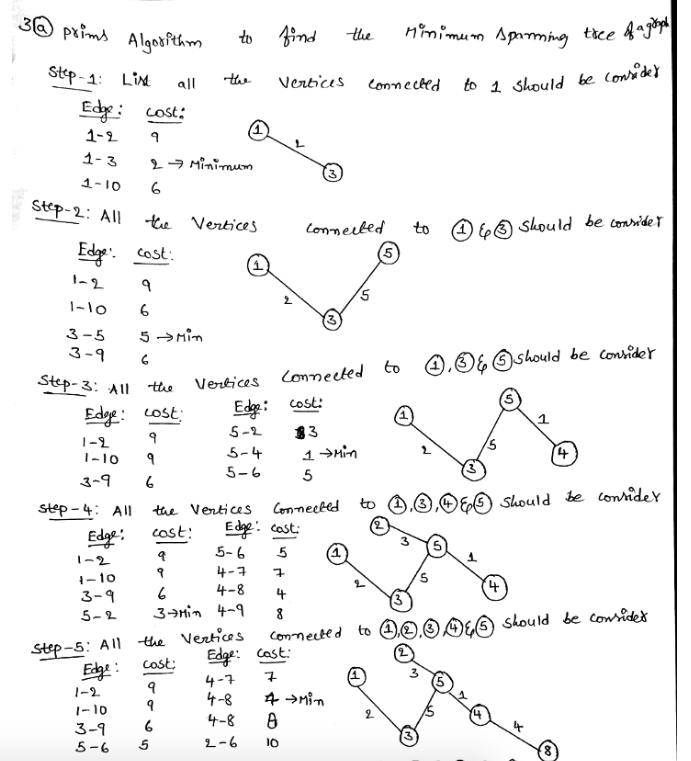 3(a) prims Algorithm to find the Minimum Spanning tree of a graph
Step-1: List all the vertices connected to 1 should be consider
Edge: cost:
1-2 9
1-3 2 → Minimum
1-10 6
1
2
3
Step-2: All the Vertices connected to 1 & 3 should be consider
Edge: cost:
1-2 9
1-10 6
3-5 5 → Min
3-9 6
1
5
2
5
3
Step-3: All the Vertices Connected to 1, 3 & 5 should be consider
Edge: cost: Edge: cost:
1-2 9 5-2 3
1-10 9 5-4 1 → Min
3-9 6 5-6 5
5
1
1
2
5
3
4
Step-4: All the Vertices Connected to 1, 3, 4 & 5 should be consider
Edge: cost: Edge: cost:
1-2 9 5-6 5
1-10 9 4-7 7
3-9 6 4-8 4
5-2 3 → Min 4-9 8
2
3
1
5
1
2
5
4
3
Step-5: All the Vertices connected to 1, 2, 3, 4 & 5 should be consider
Edge: cost: Edge: cost:
1-2 9 4-7 7
1-10 9 4-8 4 → Min
3-9 6 4-8 8
5-6 5 2-6 10
2
1
3
5
1
2
5
4
4
3
8